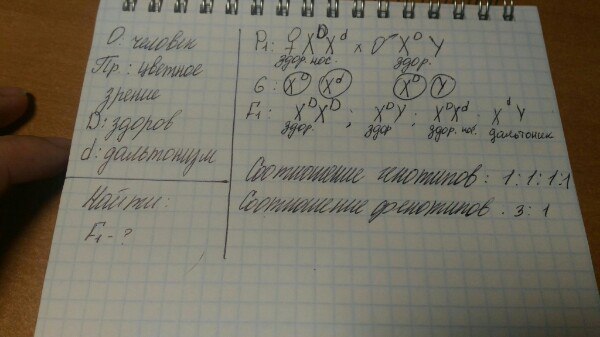 О: человек
Пр: цветное
зрение
D: здоров
d: дальтонизм
Найти:
F₁-?
P₁: ♀ XᴰXᵈ × ♂ XᴰY
здор. нос. здор.
G: Xᴰ Xᵈ Xᴰ Y
F₁: XᴰXᴰ; XᴰY; XᴰXᵈ; XᵈY
здор. здор здор. нос. дальтоник
Соотношение генотипов: 1:1:1:1
Соотношение фенотипов: 3:1